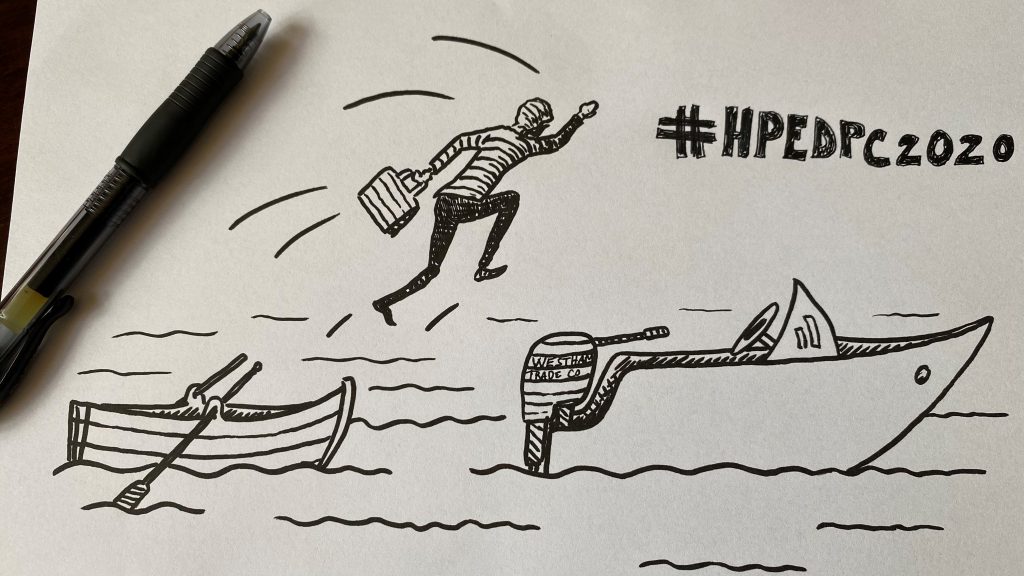 #HPEDPC2020
WESTHAM
TRADE CO